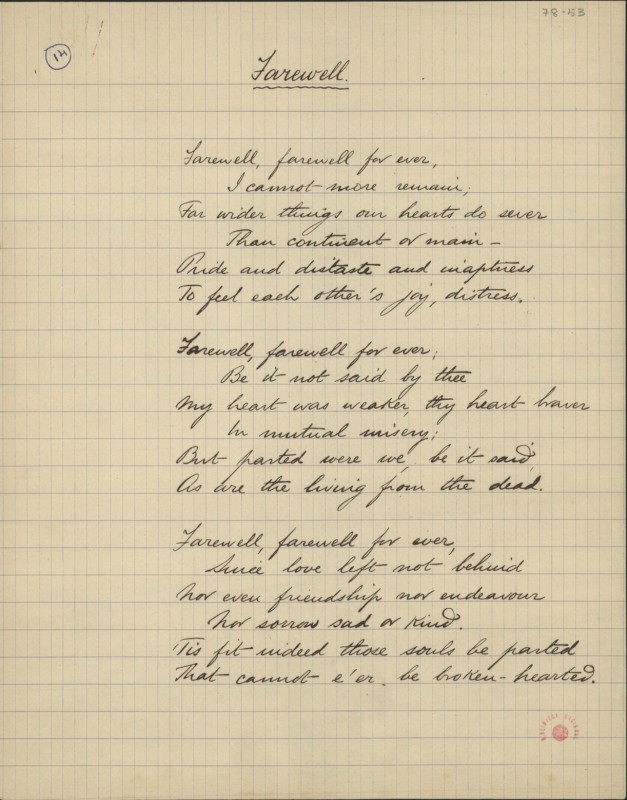 78-53
14
Farewell.
Farewell, farewell for ever,
I cannot more remain;
Far wider things our hearts do sever
Than continent or main –
Pride and distaste and inaptness
To feel each other's joy, distress.
Farewell, farewell for ever;
Be it not said by thee
My heart was weaker, thy heart braver
In mutual misery;
But parted were we, be it said,
As are the living from the dead.
Farewell, farewell for ever,
Since love left not behind
Nor even friendship nor endeavour
Nor sorrow sad or kind.
Tis fit indeed those souls be parted
That cannot e'er be broken-hearted.